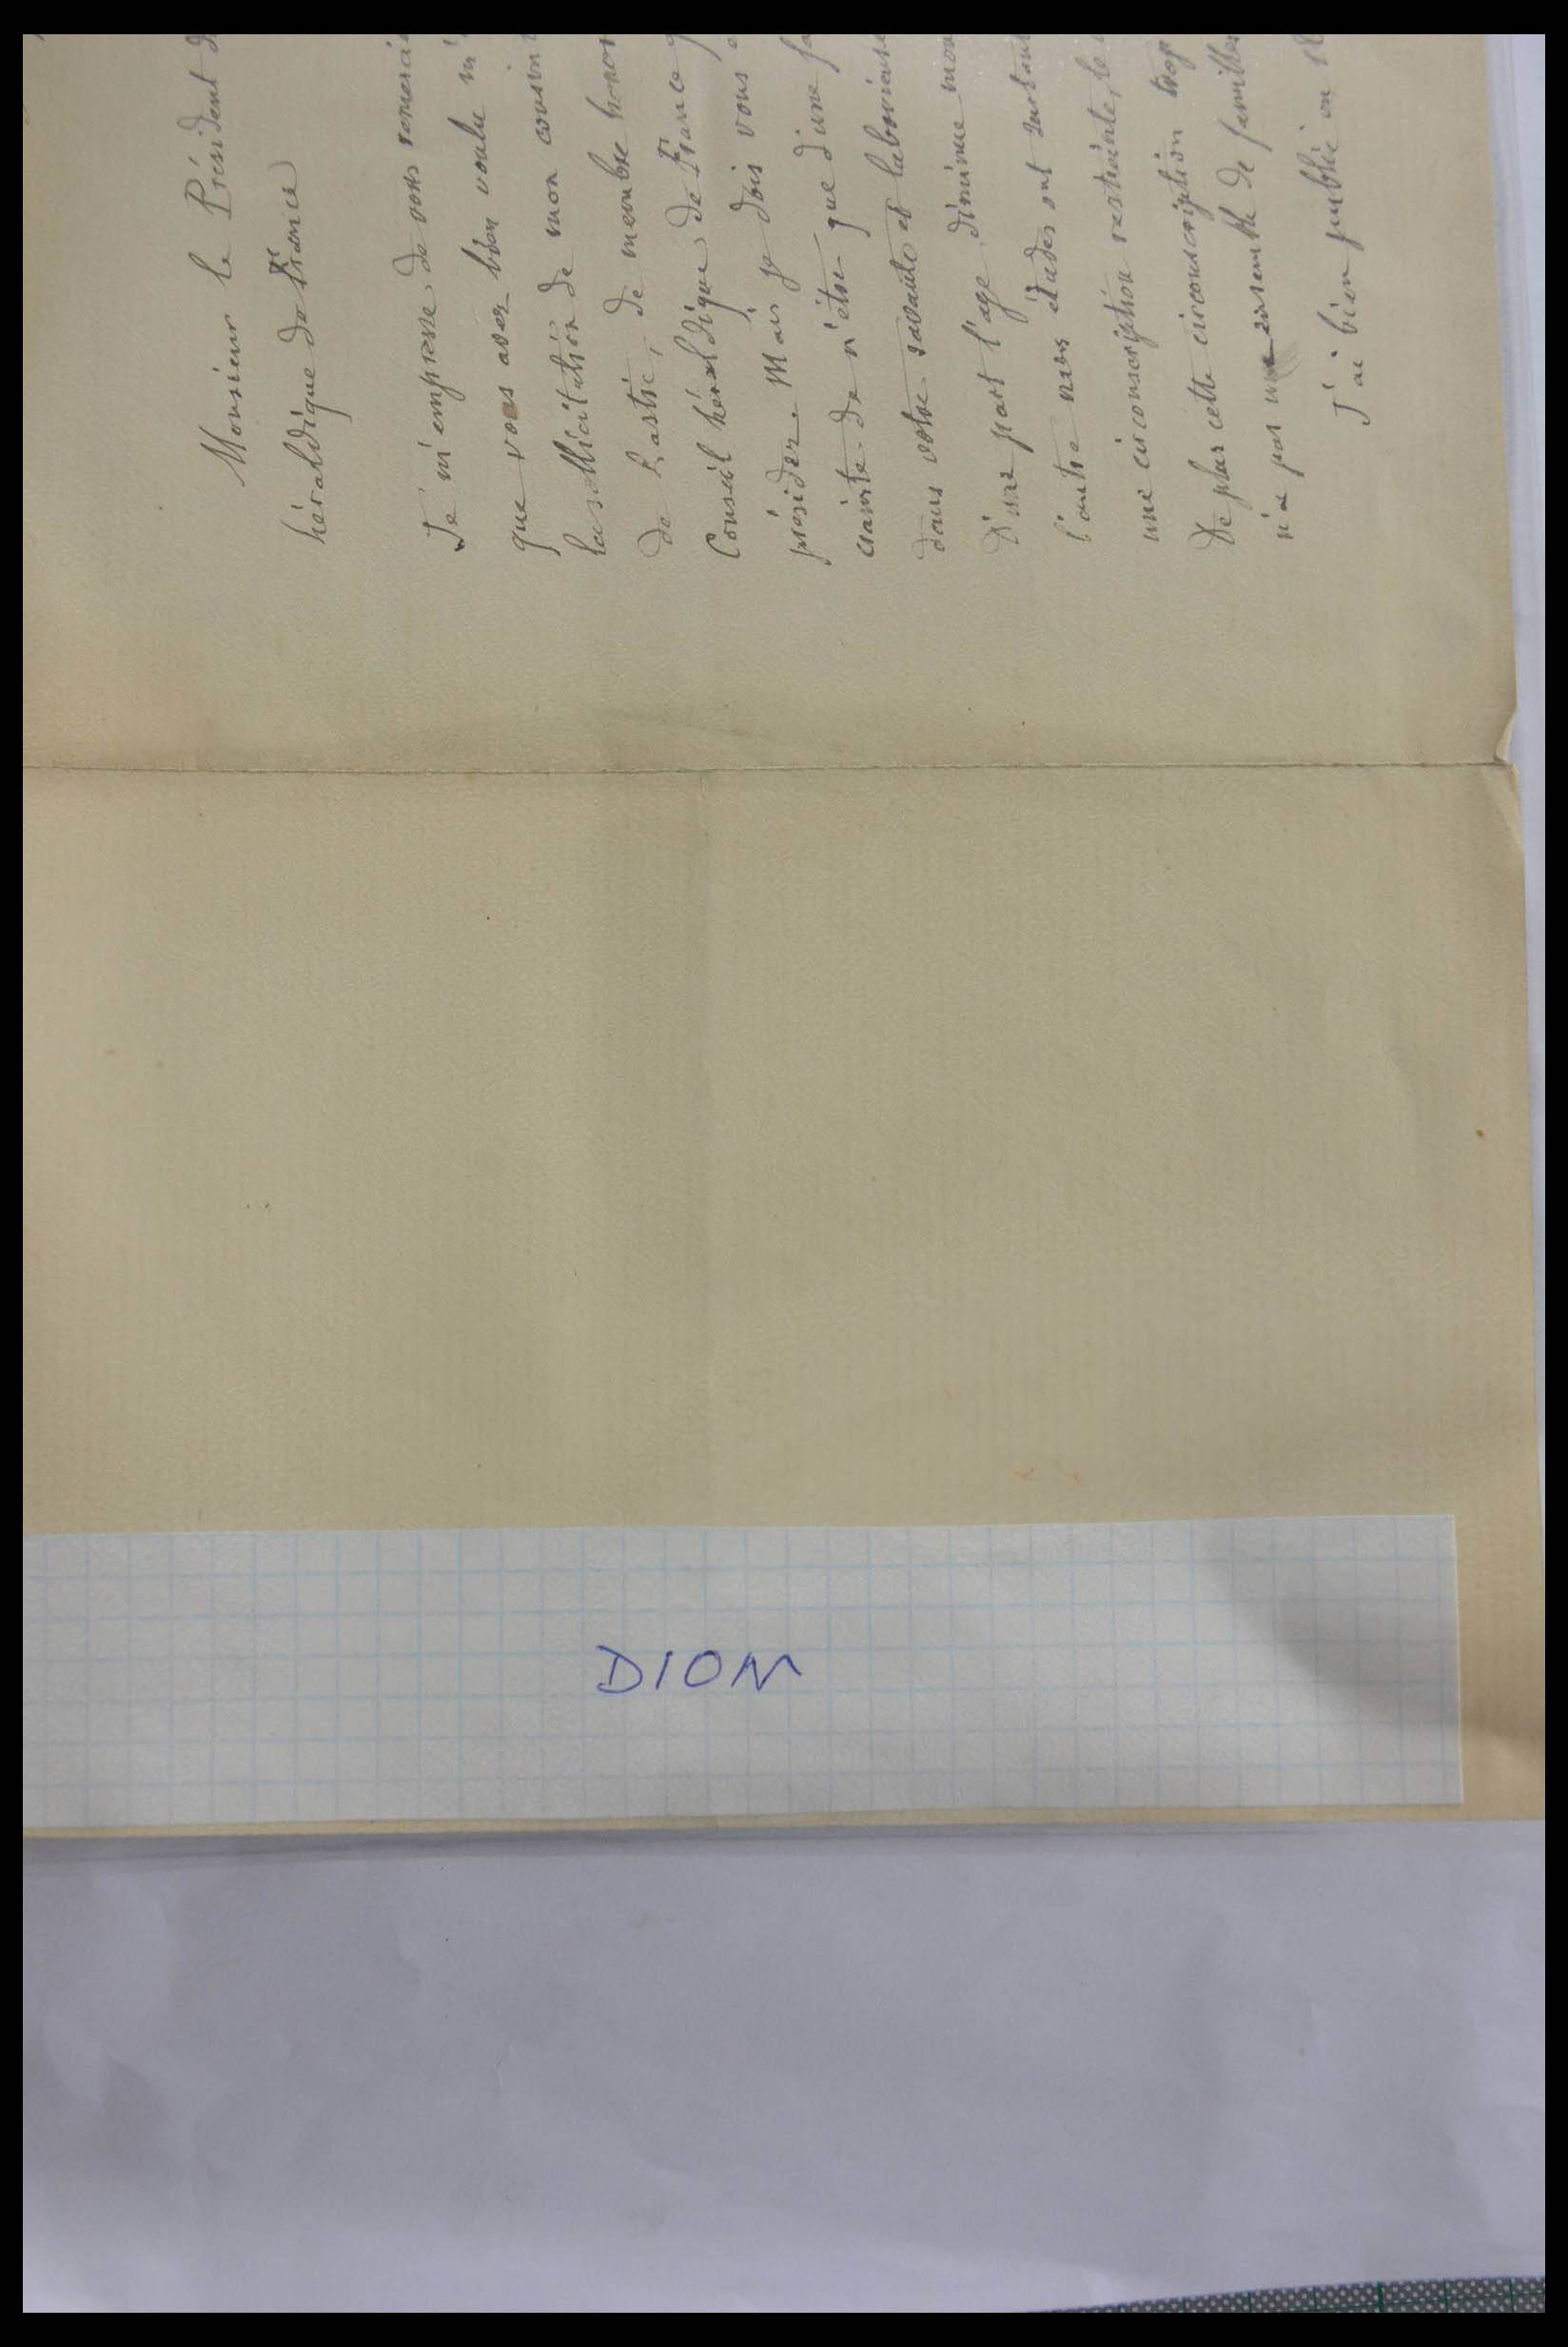 Monsieur le Président d
héraldique de France
Je m'empresse de vous remercie
que vous avez bien voulu m'
la sollicitation de mon cousin
de Lastic, de membre honor
Conseil héraldique de France q
présidez. Mais je dois vous e
crainte de n'être que d'une fa
dans votre savante et laborieuse
D'une part l'age diminue mon
l'autre mes études ont surtout
une circonscription restreinte, le
De plus cette circonscription trop
n'a pas un ensemble de familles
J'ai bien publié en 18
DION